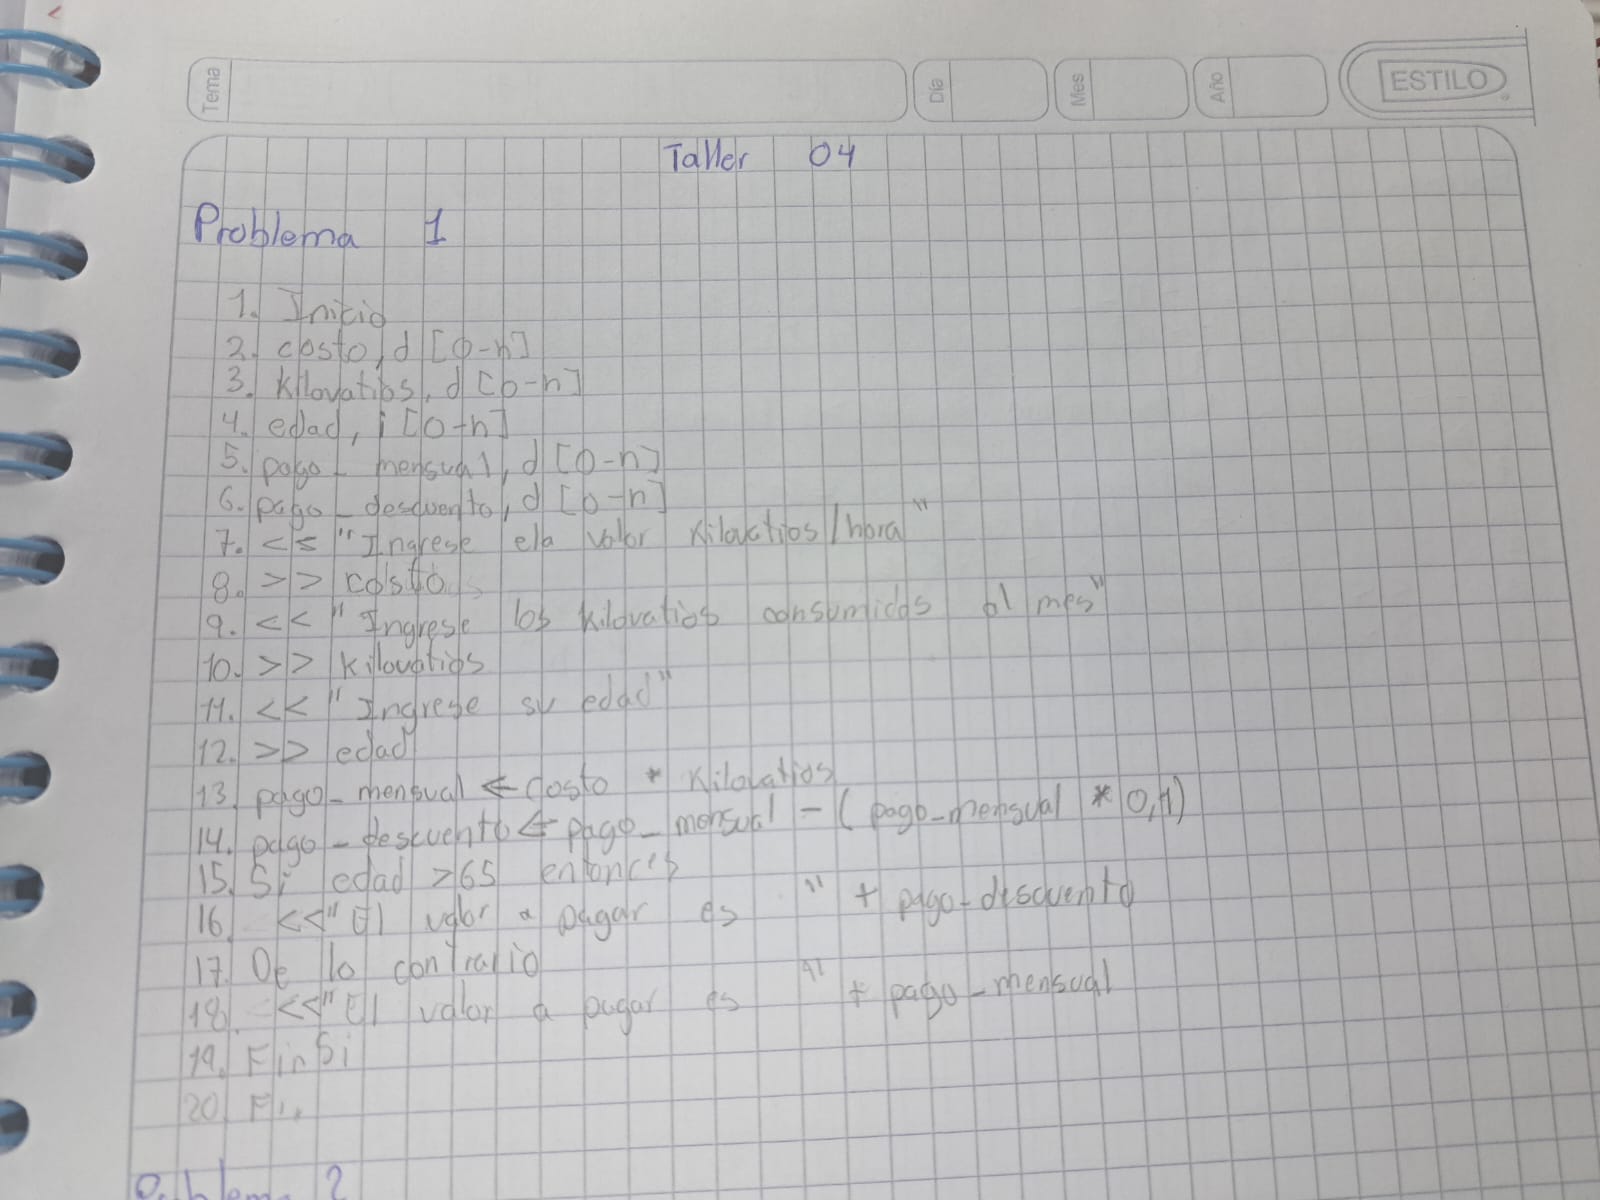 Tema
Día
Mes
Año
ESTILO
Taller 04
Problema 1
1. Inicio
2. costo, d [0-n]
3. kilovatios, d [0-n]
4. edad, i [0-n]
5. pago_mensual, d [0-n]
6. pago_descuento, d [0-n]
7. << "Ingrese ela valor kilovatios/hora"
8. >> costo
9. << "Ingrese los kilovatios consumidos al mes"
10. >> kilovatios
11. << "Ingrese su edad"
12. >> edad
13. pago_mensual ← costo * kilovatios
14. pago_descuento ← pago_mensual - (pago_mensual * 0,1)
15. Si edad > 65 entonces
16. << "El valor a pagar es " + pago_descuento
17. De lo contrario
18. << "El valor a pagar es " + pago_mensual
19. Fin Si
20. Fin
Problema 2